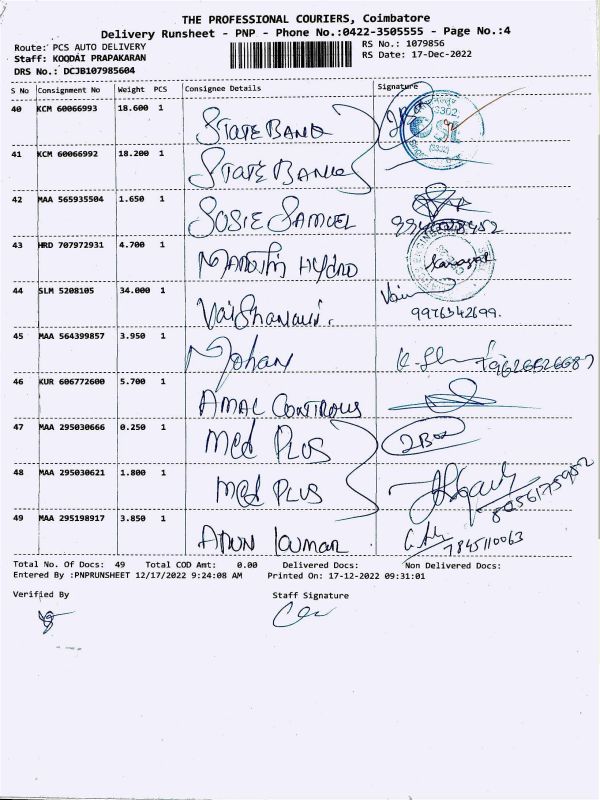 THE PROFESSIONAL COURIERS, Coimbatore
Delivery Runsheet - PNP - Phone No.:0422-3505555 - Page No.:4
Route: PCS AUTO DELIVERY
RS No.: 1079856
Staff: KOODAI PRAPAKARAN
RS Date: 17-Dec-2022
DRS No.: DCJB107985604
S No Consignment No Weight PCS Consignee Details Signature
40 KCM 60066993 18.600 1 STATE BANK
41 KCM 60066992 18.200 1 STATE BANK
42 MAA 565935504 1.650 1 SOSIE SAMUEL
43 HRD 707972931 4.700 1 HYDRO
44 SLM 5208105 34.000 1 Vaishanavi. 9976342699.
45 MAA 564399857 3.950 1 Mohan
46 KUR 606772600 5.700 1 AMAL CONTROLS
47 MAA 295030666 0.250 1 Med PLUS 2Box
48 MAA 295030621 1.800 1 Med PLUS 8056175952
49 MAA 295198917 3.850 1 ARUN KUMAR 7845110063
Total No. Of Docs: 49 Total COD Amt: 0.00 Delivered Docs: Non Delivered Docs:
Entered By :PNPRUNSHEET 12/17/2022 9:24:08 AM Printed On: 17-12-2022 09:31:01
Verified By Staff Signature